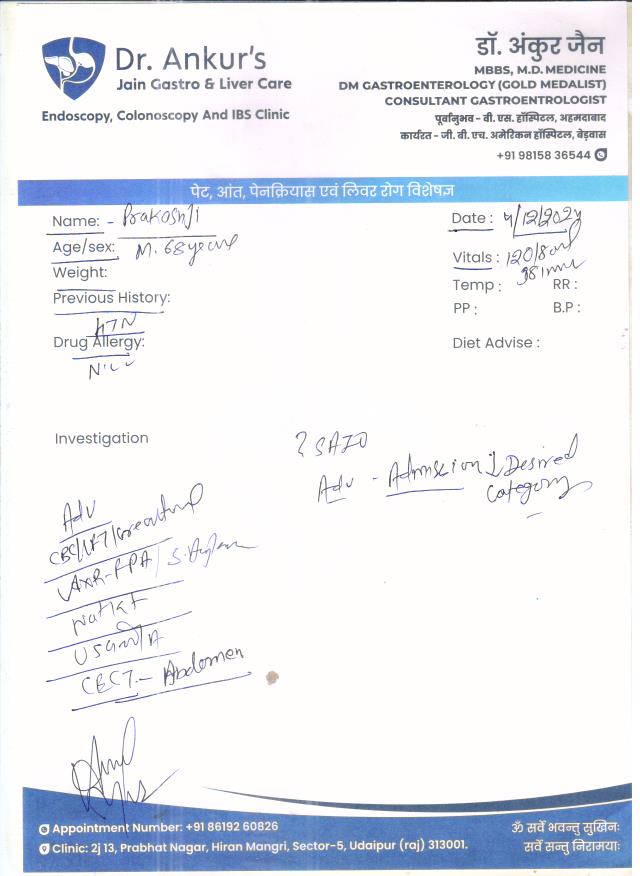 Dr. Ankur's
Jain Gastro & Liver Care
Endoscopy, Colonoscopy And IBS Clinic
डॉ. अंकुर जैन
MBBS, M.D. MEDICINE
DM GASTROENTEROLOGY (GOLD MEDALIST)
CONSULTANT GASTROENTROLOGIST
पूर्वानुभव - वी. एस. हॉस्पिटल, अहमदाबाद
कार्यरत - जी. बी. एच. अमेरिकन हॉस्पिटल, बेड़वास
+91 98158 36544
पेट, आंत, पेनक्रियास एवं लिवर रोग विशेषज्ञ
Name: - Prakashji
Date : 4/12/2024
Age/sex: M. 68 years
Vitals : 120/80
Weight:
Temp : RR :
Previous History:
HTN
PP : B.P :
Drug Allergy:
Nil
Diet Advise :
Investigation
? SAIO
Adv - Admission Desired
Category
Adv
CBC/LFT/
AXR-FPA / S.
Na+/K+
USG
CECT - Abdomen
Appointment Number: +91 86192 60826
ॐ सर्वे भवन्तु सुखिनः
Clinic: 2j 13, Prabhat Nagar, Hiran Mangri, Sector-5, Udaipur (raj) 313001.
सर्वे सन्तु निरामयाः